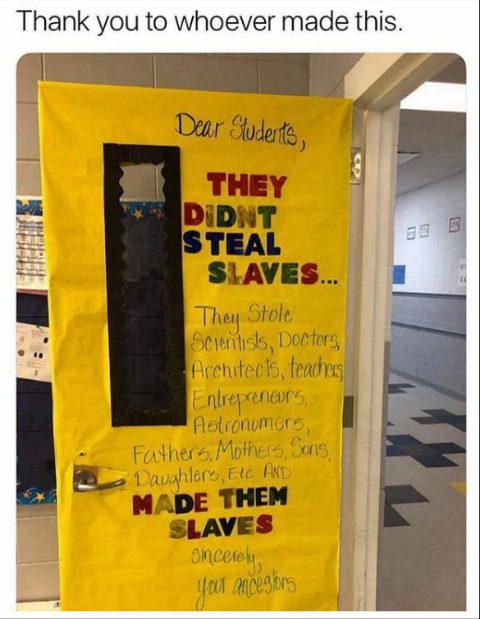 Thank you to whoever made this.
Dear Students,
THEY
DIDNT
STEAL
SLAVES...
They Stole
Scientists, Doctors,
Architects, teachers
Entrepreneurs,
Astronomers,
Fathers, Mothers, Sons,
Daughters, Etc AND
MADE THEM
SLAVES
Sincerely,
your ancestors